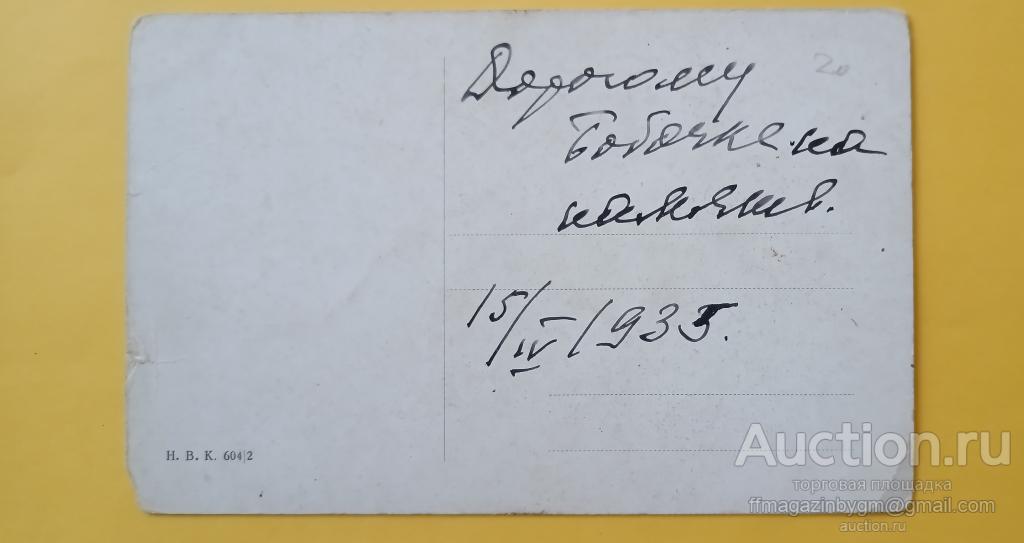 Дорогому
20
Бобочке на
память.
15/IV 1935.
H. B. K. 604|2
Auction.ru
торговая площадка
ffmagazinbygm@gmail.com
auction.ru